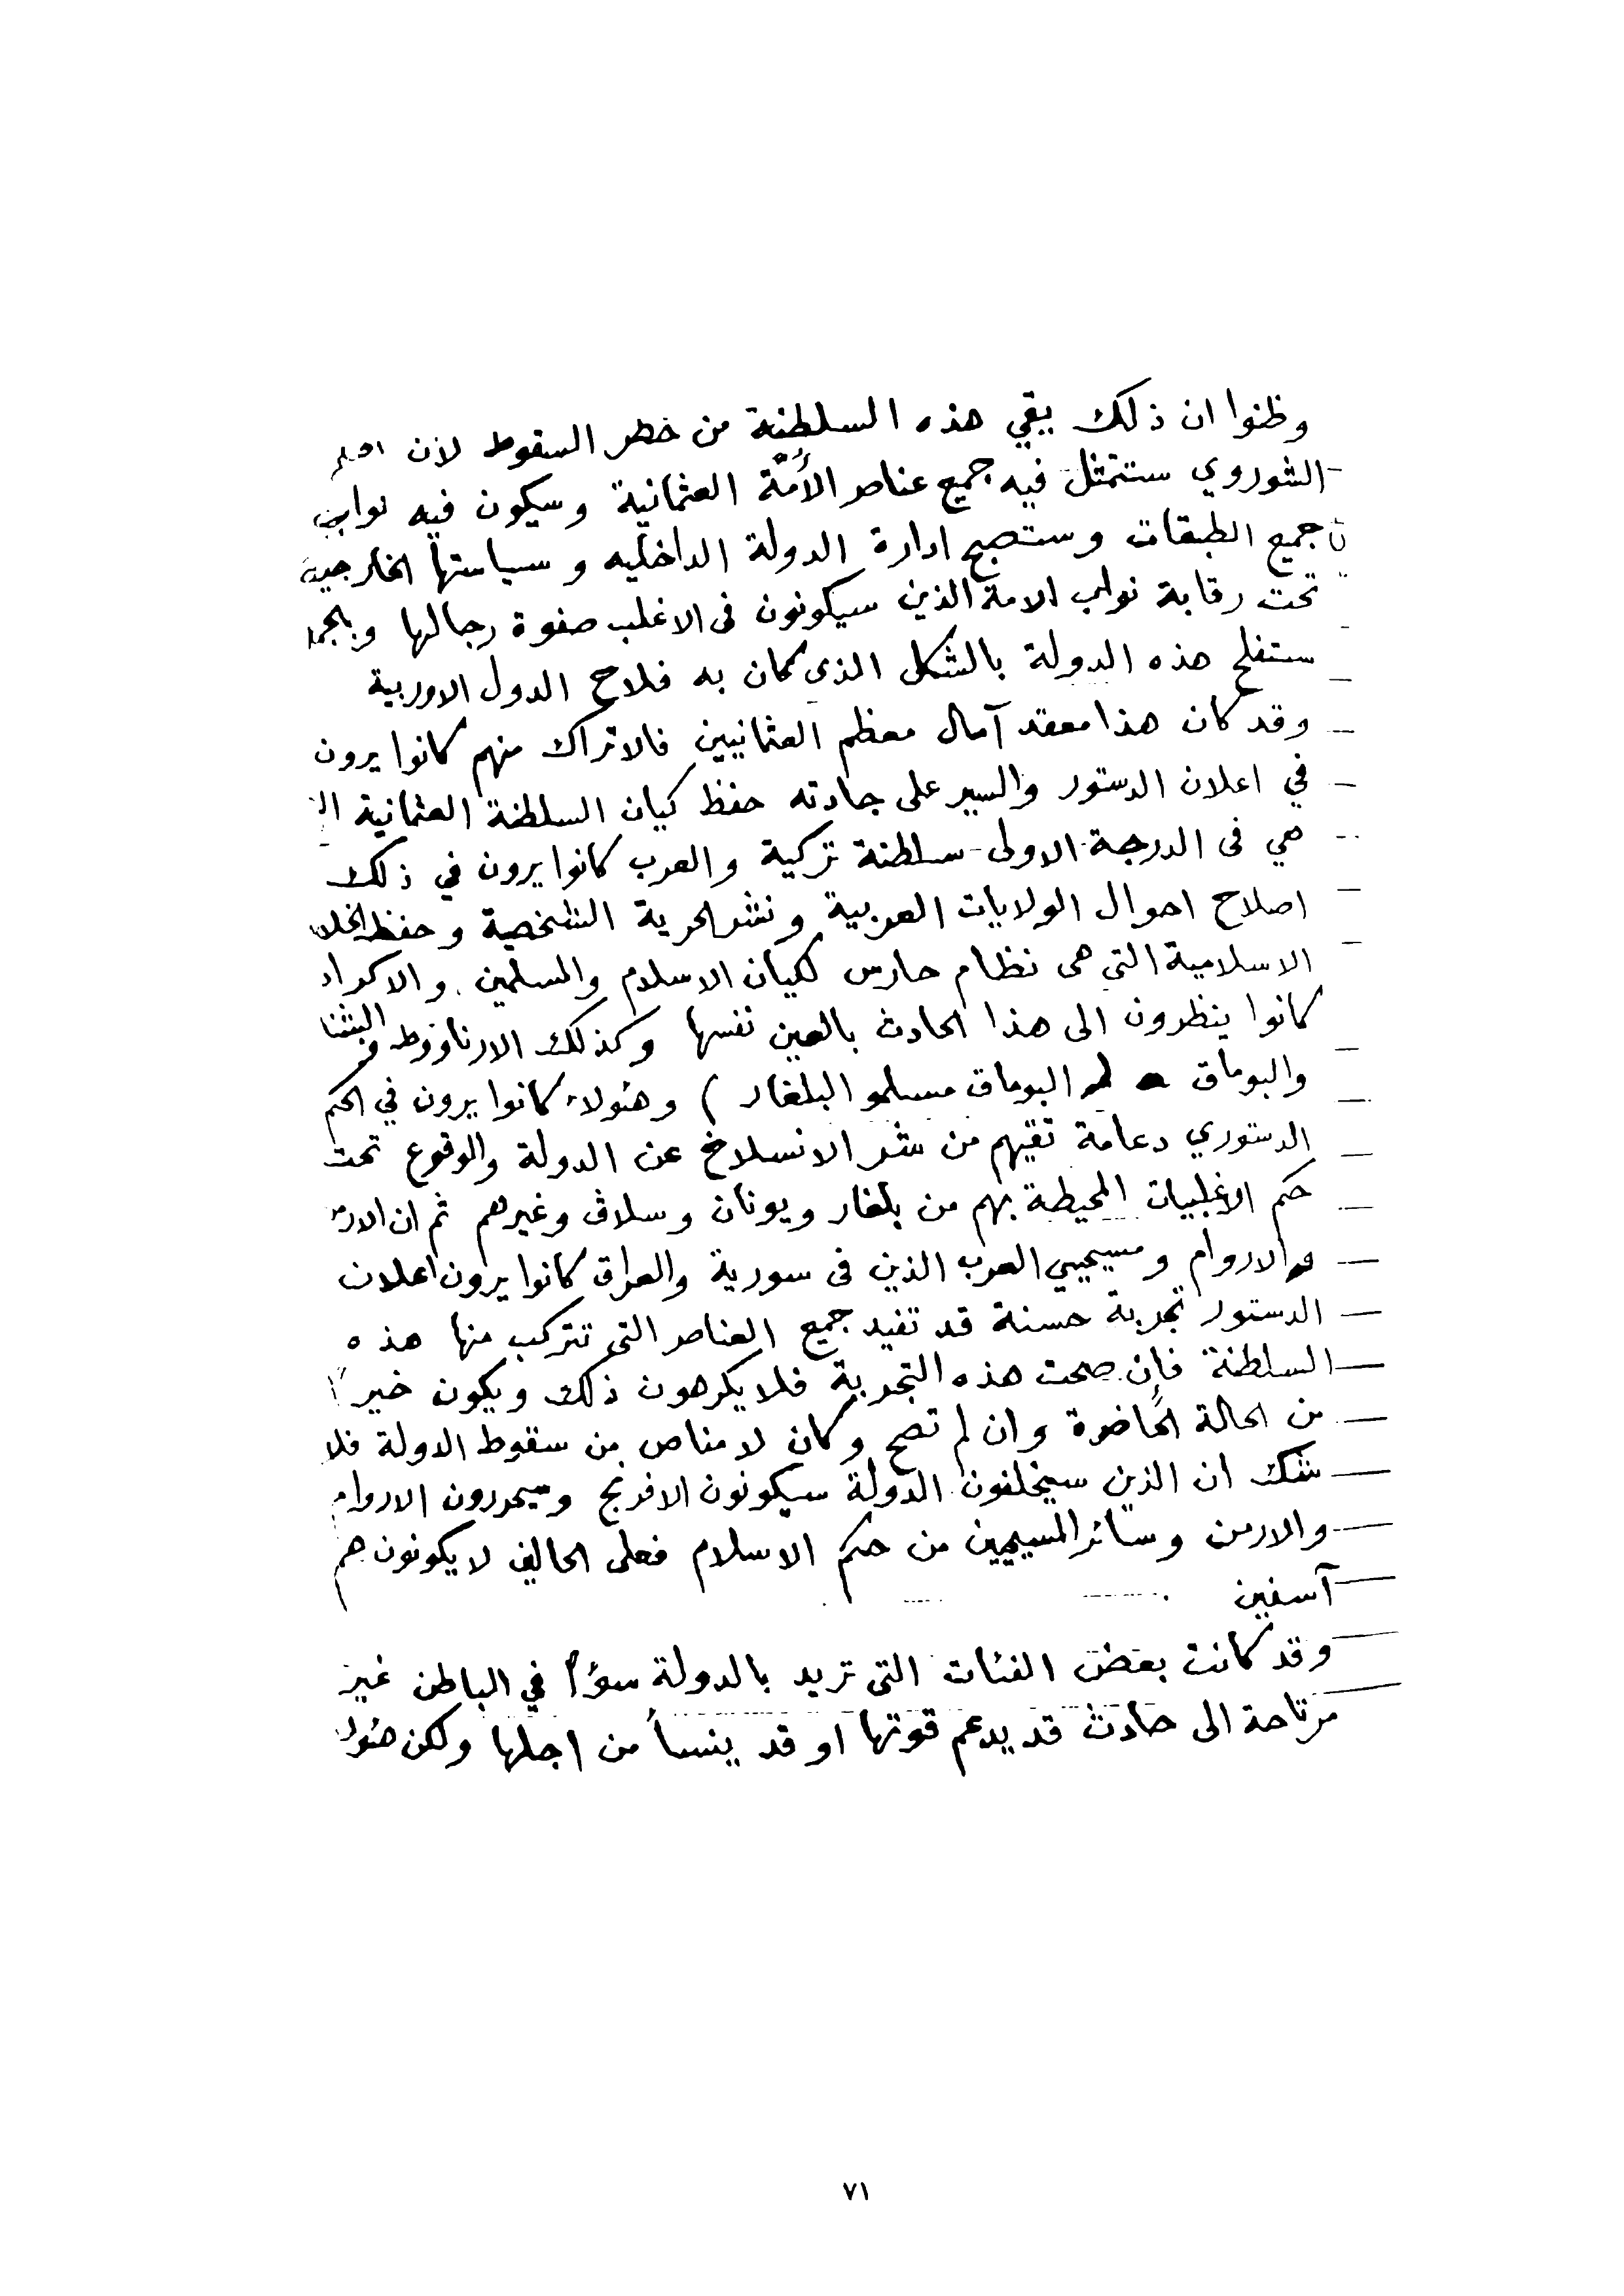 وظنوا ان ذلك يقي هذه السلطنة من خطر السقوط لأن
الشوروي ستتمثل فيه جميع عناصر الأمّة العثمانية وسيكون فيه نواب
جميع الطبقات وستصبح ادارة الدولة الداخليه و سياستها الخارجية
تحت رقابة نواب الامة الذين سيكونون فى الاغلب صفوة رجالها
ستفلح هذه الدولة بالشكل الذى كان به فلاح الدول الاوربية
وقد كان هذا معقد آمال معظم العثمانيين فالاتراك منهم كانوا يرون
في اعلان الدستور والسير على جادته حفظ كيان السلطنة العثمانية
هي فى الدرجة الاولى سلطنة تركية والعرب كانوا يرون في ذلك
اصلاح احوال الولايات العربية ونشر الحرية الشخصية وحفظ
الاسلامية التي هى نظام حارس لكيان الاسلام والمسلمين . والاكراد
كانوا ينظرون الى هذا الحادث بالعين نفسها وكذلك الارناؤوط
والبوماق البوماق مسلمو البلغار ) وهئولاء كانوا يرون في الحكم
الدستوري دعامة تقيهم من شر الانسلاخ عن الدولة والوقوع تحت
حكم الاغلبيات المحيطة بهم من بلغار ويونان وسلاف وغيرهم ثم ان
والاروام ومسيحيي العرب الذين فى سورية والعراق كانوا يرون اعلان
الدستور تجربة حسنة قد تفيد جميع العناصر التى تتركب منها هذه
السلطنة فإن صحت هذه التجربة فلا يكرهون ذلك ويكون خيراً
من الحالة الحاضرة وان لم تصح وكان لا مناص من سقوط الدولة فلا
شك ان الذين سيخلفون الدولة سيكونون الافرنج وسيحررون الاروام
والارمن وسائر المسيحيين من حكم الاسلام فعلى الحالين لا يكونون هم
آسفين
وقد كانت بعض الفئات التى تريد بالدولة سوٴاً في الباطن غير
مرتاحة الى حادث قد يدعم قوتها او قد ينسأ من اجلها ولكن
٧١